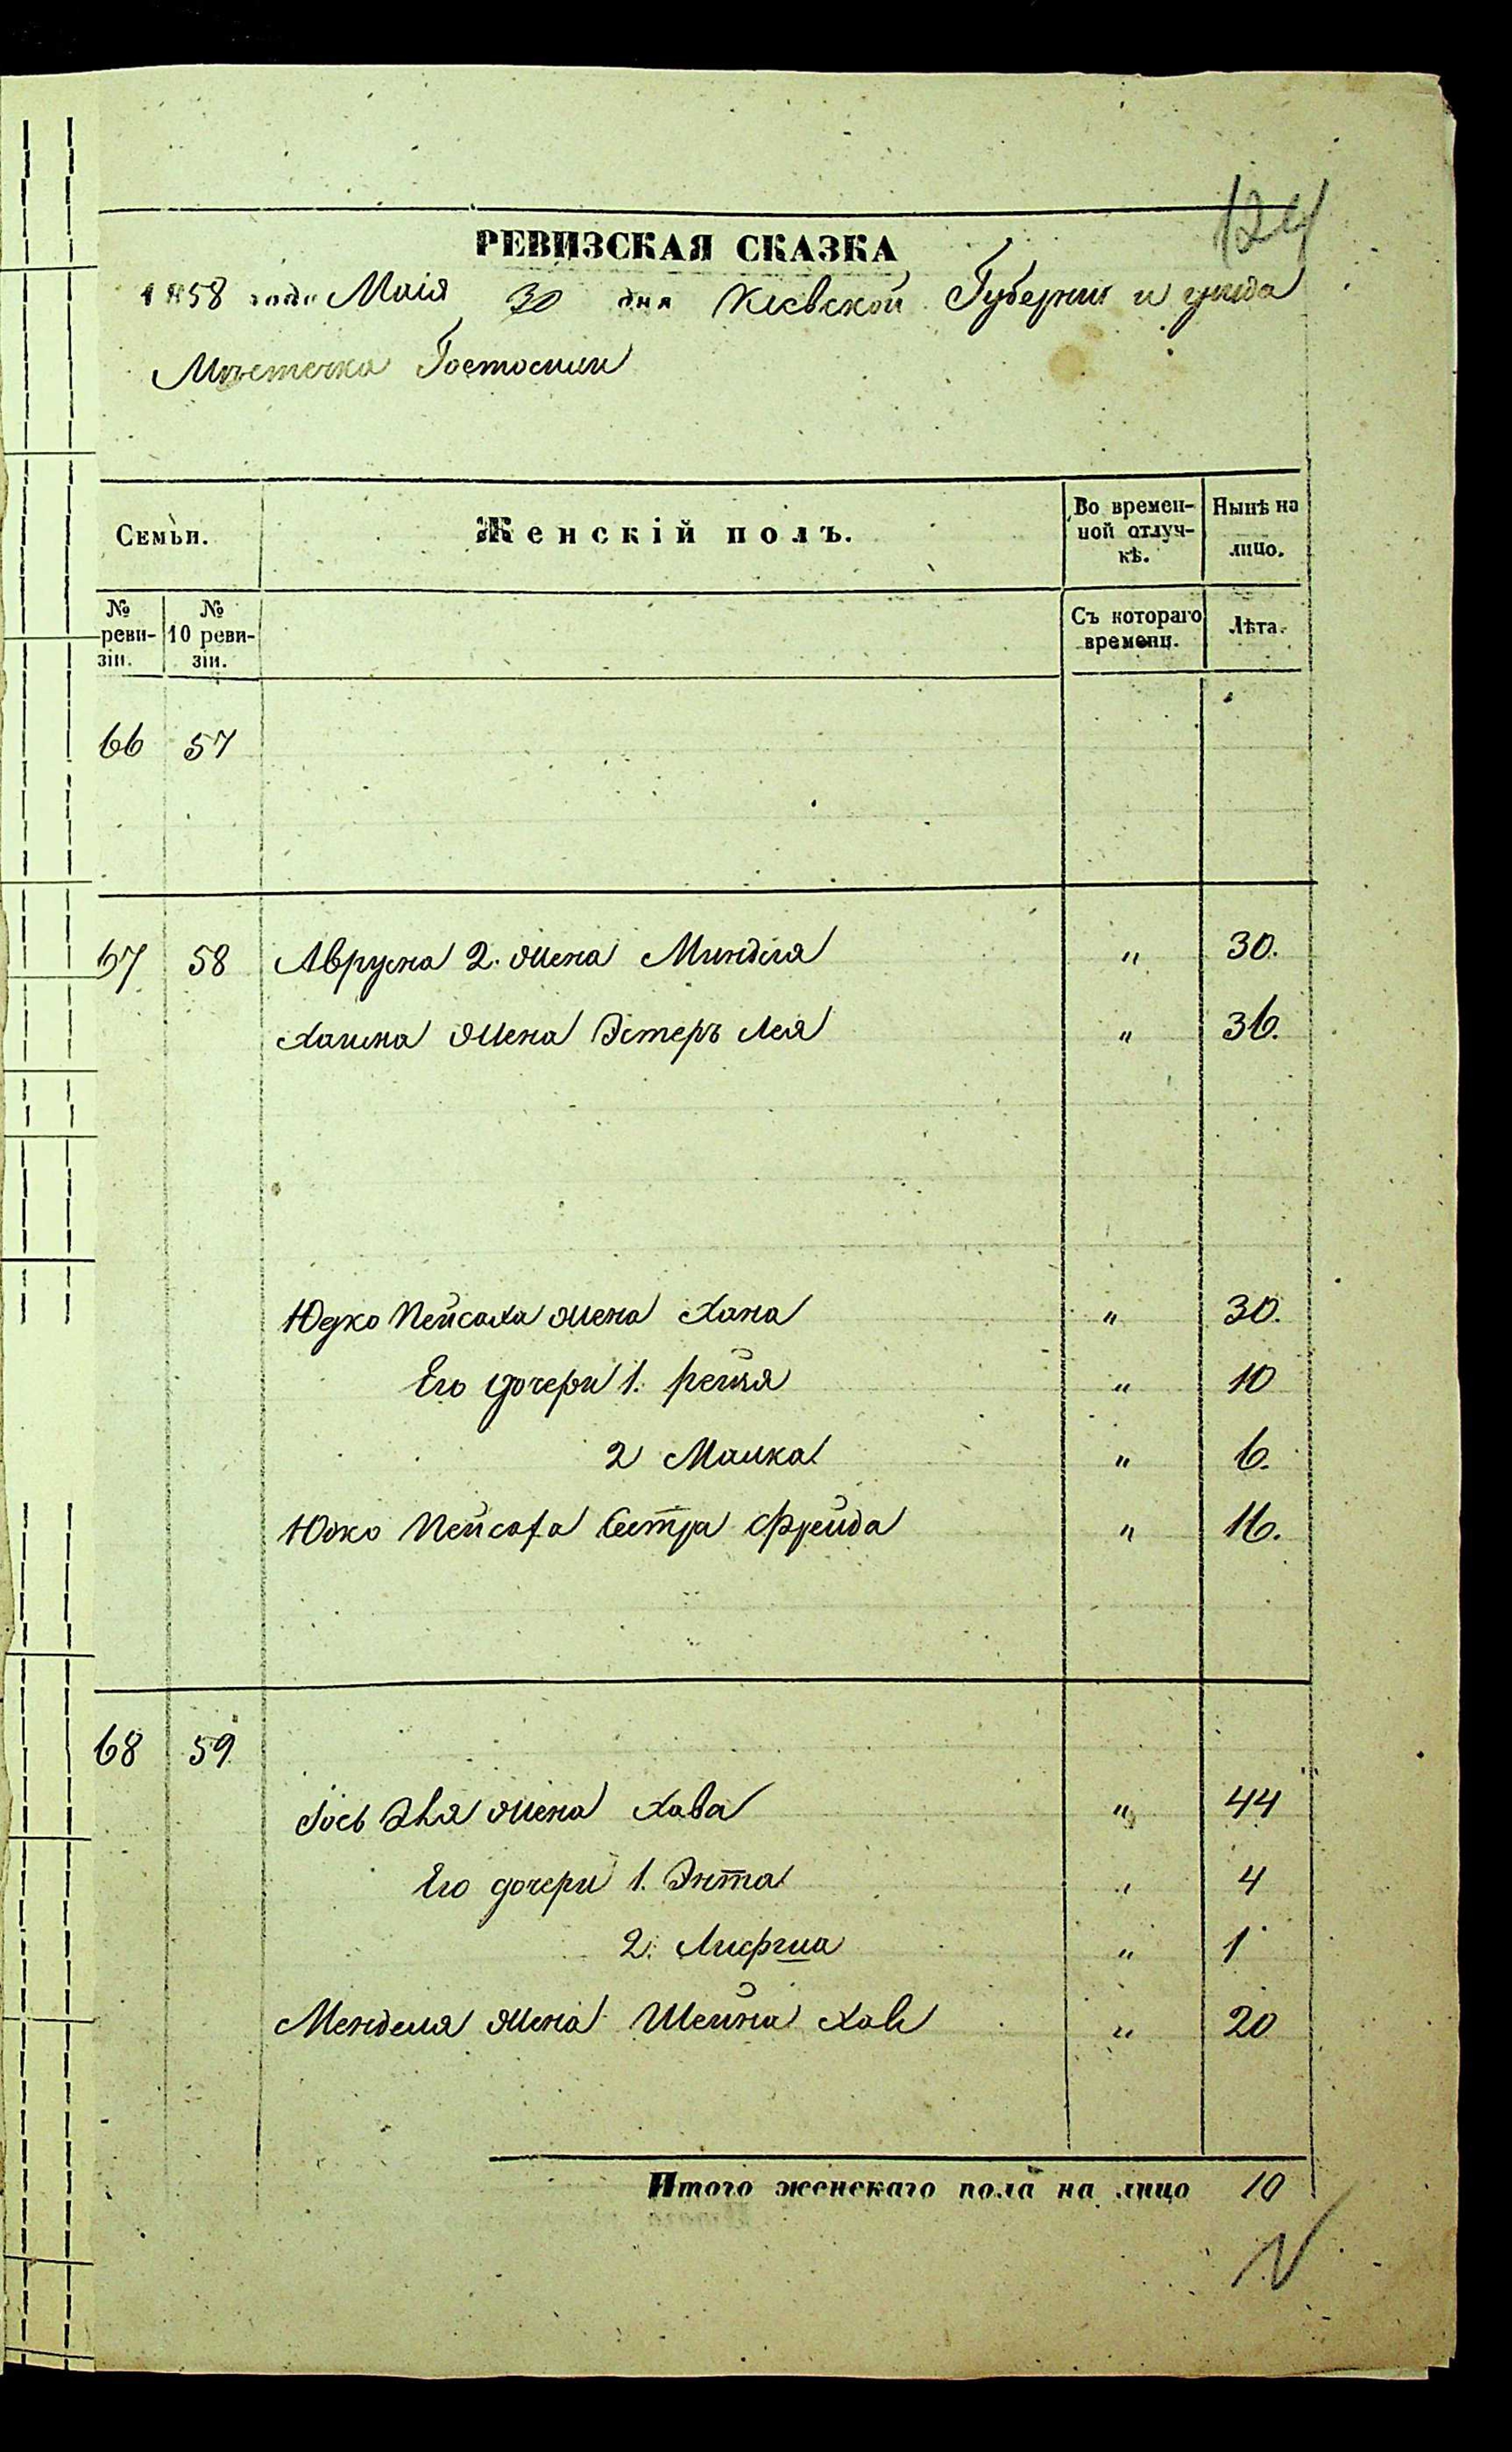 124
РЕВИЗСКАЯ СКАЗКА
1858 года Маія 30 дня Кіевской Губерніи и уезда
Мѣстечка Гостомли
Семьи.
Женскій полъ.
Во времен-
ной отлуч-
кѣ.
Нынѣ на
лицо.
№
реви-
зіи.
№
10 реви-
зіи.
Съ котораго
времени.
Лѣта.
66 57
67 58 Аврума 2. жена Миндля " 30.
Хаима жена Эстеръ Лея " 36.
Юдко Пейсаха жена Хана " 30.
Его дочери 1. Рейзя " 10
2 Малка " 6.
Юдко Пейсаха Сестра Фрейда " 16.
68 59
Іось Эля жена Хава " 44
Его дочери 1. Энта " 4
2. " 1
Менделя жена Шейна Хава " 20
Итого женскаго пола на лицо 10